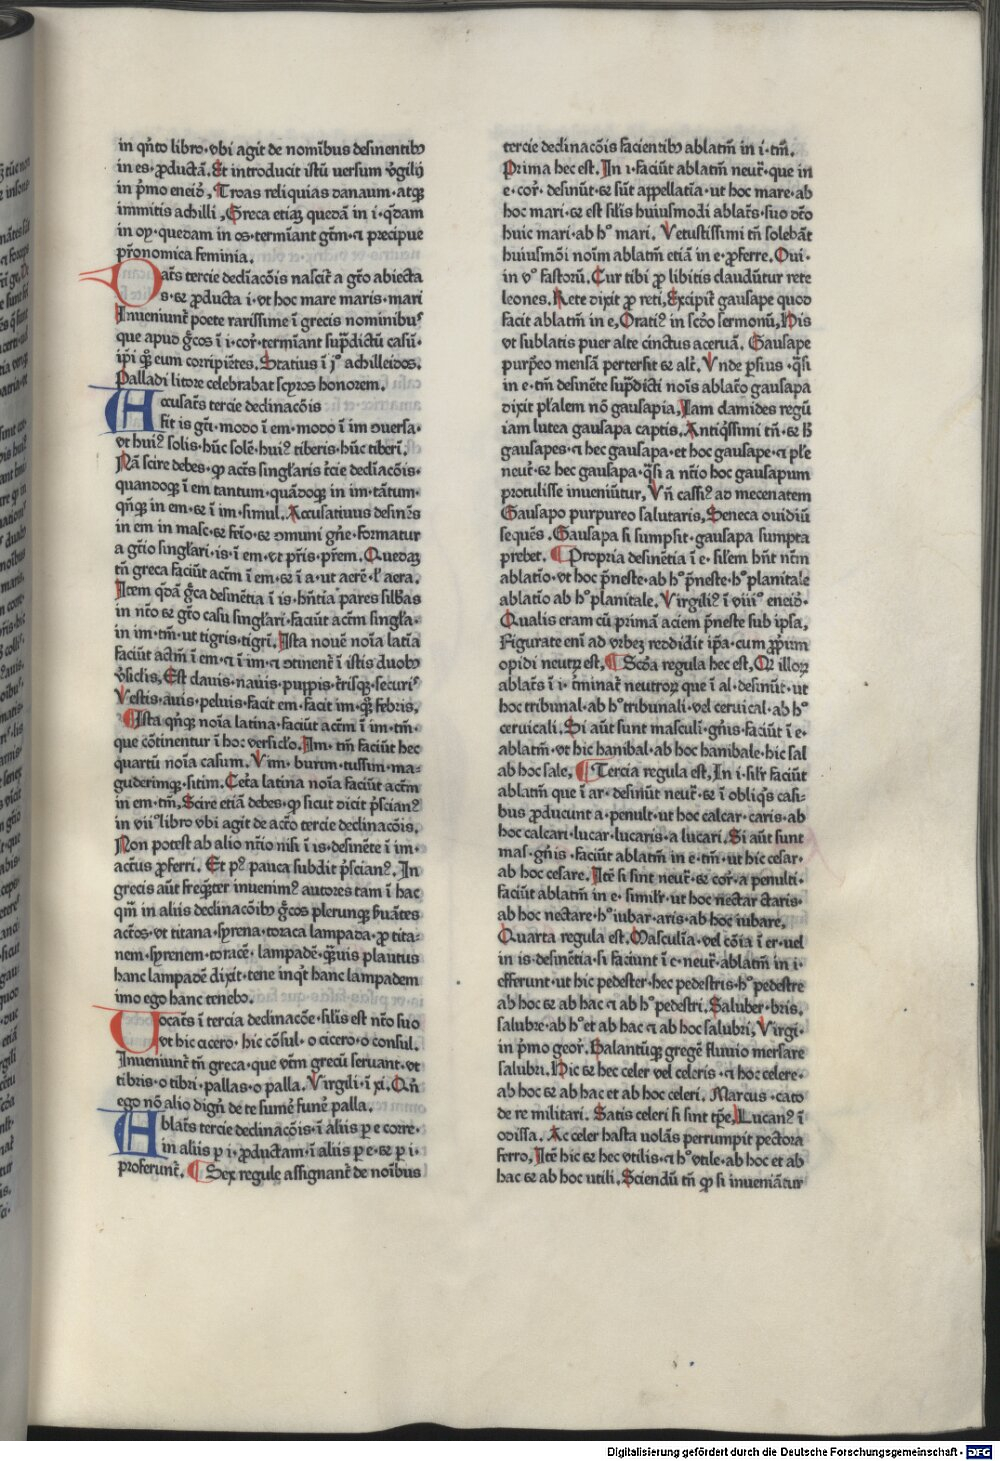 in q̄nto libro·vbi agit de nomībus desinentib9
in es·ꝓductā. Et introducit istū uersum v̓gilij
in p̓mo eneid̓, Troas reliquias danaum·atqꝫ
immitis achilli, Greca etiaꝫ quedā in i·q̄dam
in oy·quedam in os·termīant gt̄m·⁊ precipue
pr̄onomica feminia.
Dat̄s tercie declīacōis nascit̄ a gt̄o abiecta
s·⁊ ꝓducta i·vt hoc mare maris·mari
Inueniunt̄ poete rarissime ī grecis nominibus
que apud g̅cos ī i·cor̄·termīant sup̄dictū casū·
ip̄i qꝫ eum corripiētes. Statius ī j° achilleidos.
Palladi litore celebrabat scyros honorem.
Accusat̄s tercie declinacōis
fit is gt̄i·modo ī em·modo ī im ɔuersa·
vt hui9 solis·hūc solē·hui9 tiberis·hūc tiberī.
Nā scire debes·ꝙ act̄s singl̄aris t̄cie declīacōis·
quandoqꝫ ī em tantum·quādoqꝫ in im·tātum·
qn̄qꝫ in em·⁊ ī im·simul. Accusatiuus desinēs
in em in masc̄·⁊ fēīo·⁊ ɔmuni gn̄e·formatur
a gt̄io singl̄ari·is·ī em·vt pr̄is·pr̄em. Quedaꝫ
tn̄ greca faciūt actm̄ ī em·⁊ ī a·ut aerē·l̄ aera.
Item qdā g̅ca desinētia ī is·hn̄tia pares sill̄bas
in nt̄o ⁊ gt̄o casu singl̄ari·faciūt actm̄ singl̄a·
in im·tm̄·ut tigris·tigrī. Ista nouē noīa latīa
faciūt actm̄ ī em·⁊ ī im·⁊ ɔtinent̄ ī istis duob9
v̓siclis, Est clauis·nauis·puppis·t̄risqꝫ·securis
Vestis·auis·peluis·facit em·facit im·qꝫ febris,
Ista qn̄qꝫ noīa latina·faciūt actm̄ ī im·tm̄·
que cōtinentur ī hoc versiclo. Im·tm̄ faciūt hec
quartū noīa casum. Vim·burim·tussim·ma-
guderimqꝫ·sitim. Cet̄a latina noīa faciūt actm̄
in em·tm̄, Scire etiā debes·ꝙ sicut dicit p̓scian9
in vii° libro vbi agit de act̄o tercie declinacōis.
Non potest ab alio nt̄io nisi ī is·desinēte ī im·
actūs ꝓferri. Et p9 pauca subdit p̓scian9. In
grecis aūt freqn̄ter inuenim9 autores tam ī hac
qm̄ in aliis declinacōib9 g̅cos plerunqꝫ ẜuātes
act̄os·vt titana·syrena·toraca lampada·ꝓ tita-
nem·syrenem·toracē·lampadē·qm̄uis plautus
hanc lampadē dixit·tene inq̄t hanc lampadem
imo ego hanc tenebo.
Vocat̄s ī tercia declinacōe·sil̄is est nt̄o suo
vt hic cicero·hic cōsul·o cicero·o consul.
Inueniunt̄ tn̄ greca·que vt̄m grecū seruant·vt
tibris·o tibri·pallas·o palla. Virgili·ī xi. Qn̄
ego nō alio dign̄ de te sumē funē palla.
Ablat̄s tercie declinacōis·ī aliis p e corre·
in aliis p i·ꝓductam·ī aliis p e·⁊ p i·
proferunt̄. Sex regule assignant̄ de noībus
tercie declinacōis facientib9 ablatm̄ in i·tm̄.
Prima hec est. In i·faciūt ablatm̄ neut̄·que in
e·cor̄·desinūt·⁊ sūt appellatīa·ut hoc mare·ab
hoc mari·⁊ est sil̄is huiusmodi ablat̄s·suo dt̄o
huic mari·ab h° mari. Vetustissimi tn̄ solebāt
huiusmōi noīm ablatm̄ etiā in e·ꝓferre. Oui·
in v° fastorū. Cur tibi ꝓ libitis claudūtur rete
leones. Rete dixit ꝓ reti, Excipit̄ gausape quod
facit ablatm̄ in e, Orati9 in scd̄o sermonū, His
vt sublatis puer alte cinctus aceruā. Gausape
purp̄eo mensā pertersit ⁊ alt̄. Vnde p̄sius·q̄si
in e·tm̄ desinēte sup̄dicti noīs ablat̄o gausapa
dixit pl̄alem nō gausapia, Iam clamides regū
iam lutea gausapa captis. Antiqssimi tn̄·⁊ ħ
gausapes·⁊ hec gausapa·et hoc gausape·⁊ pl̄e
neut̄·⁊ hec gausapa·q̄si a nt̄io hoc gausapum
protulisse inueniūtur, Vn̄ cassi9 ad mecenatem
Gausapo purpureo salutaris, Seneca ouidiū
sequēs. Gausapa si sumpsit·gausapa sumpta
prebet. Propria desinētia ī e·sil̄em hn̄t nt̄m
ablat̄io·vt hoc p̄neste·ab h° p̄neste·h° planitale
ablatio ab h° planitale. Virgili9 ī viii° eneid̓·
Qualis eram cū primā aciem p̄neste sub ipsa,
Figurate enī ad vrbeꝫ reddidit ip̄a·cum ꝓprium
opidi neutꝝ est, Scd̄a regula hec est, Qꝫ illoꝝ
ablat̄s ī i·t̓minat̄ neutroꝝ que ī al·desinūt·ut
hoc tribunal·ab h° tribunali·vel ceruical·ab h°
ceruicali. Si aūt sunt masculi·gn̄is·faciūt ī e·
ablatm̄·vt hic hanibal·ab hoc hanibale·hic sal
ab hoc sale, Tercia regula est, In i·sil̄r faciūt
ablatm̄ que ī ar·desinūt neut̄·⁊ ī obliqs casi-
bus ꝓducunt a·penult·ut hoc calcar·caris·ab
hoc calcari·lucar·lucaris·a lucari. Si aūt sunt
mas·gn̄is·faciūt ablatm̄ in e·tm̄·ut hic cesar·
ab hoc cesare, Itē si sint neut̄·⁊ cor̄·a penulti·
faciūt ablatm̄ in e·simil̄r·ut hoc nectar ctaris·
ab hoc nectare·h° iubar·aris·ab hoc iubare,
Quarta regula est. Masculīa·vel cōia ī er·uel
in is·desinētia·si faciunt ī e·neut̄·ablatm̄ in i·
efferunt·ut hic pedester·hec pedestris·h° pedestre
ab hoc ⁊ ab hac·⁊ ab h° pedestri, Saluber·bris,
salubre·ab h° et ab hac ⁊ ab hoc salubri, Virgi·
in p̓mo geor̄. Balantūqꝫ gregē fluuio mersare
salubri. Hic ⁊ hec celer vel celeris·⁊ hoc celere·
ab hoc ⁊ ab hac et ab hoc celeri. Marcus·cato
de re militari. Satis celeri si sint tp̄e, Lucan9 ī
odissa. Ac celer hasta uolās perrumpit pectora
ferro, Itē hic ⁊ hec vtilis·⁊ h° vtile·ab hoc et ab
hac ⁊ ab hoc utili. Sciendū tn̄ ꝙ si inueniātur
Digitalisierung gefördert durch die Deutsche Forschungsgemeinschaft - DFG